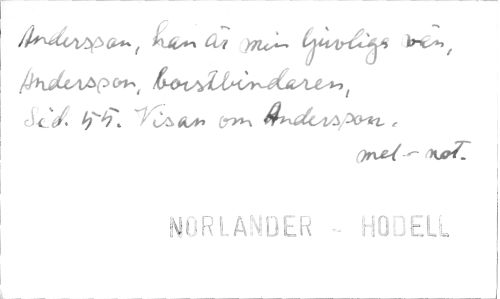 Andersson, han är min ljuvliga vän,
Andersson, borstbindaren,
Sid. 55. Visan om Andersson.
mel - not.
NORLANDER - HODELL